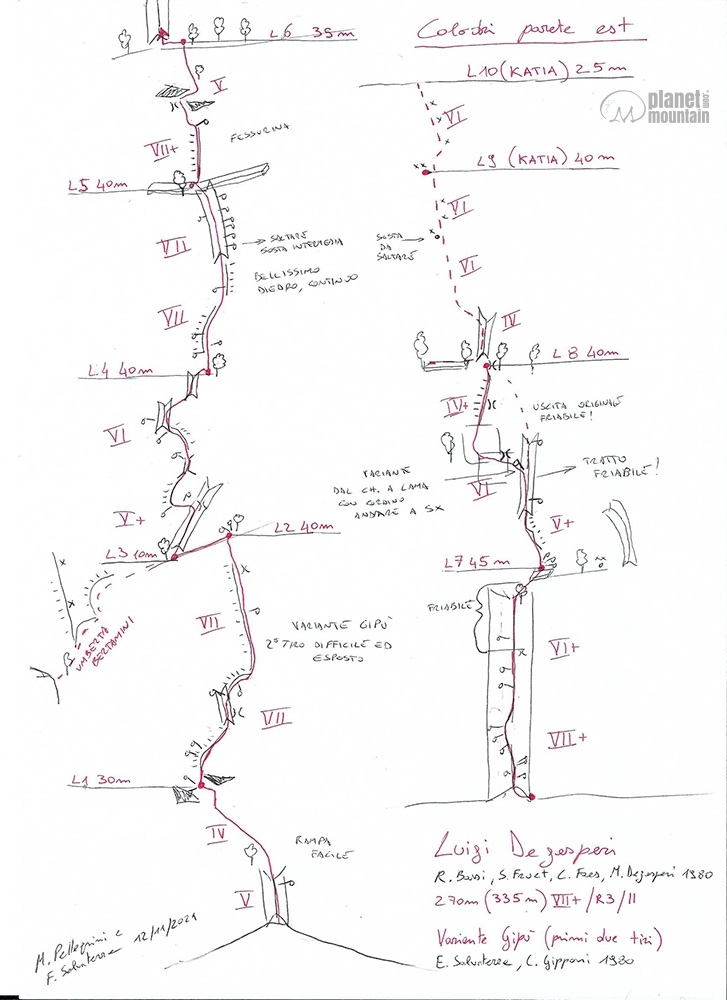 Colodri parete est
planet
mountain
.com
L6 35m
V
VII+
FESSURINA
L5 40m
VII
SALTARE
SOSTA INTERMEDIA
BELLISSIMO
DIEDRO, CONTINUO
VII
L4 40m
VI
V+
L3 10m
L2 40m
UMBERTA
BERTAMINI
VII
VARIANTE GIPÙ
2° TIRO DIFFICILE ED
ESPOSTO
VII
L1 30m
IV
RAMPA
FACILE
V
M. Pellegrini e
F. Salvaterra 12/11/2021
L10 (KATIA) 25m
VI
L9 (KATIA) 40m
VI
SOSTA
DA
SALTARE
VI
IV
L8 40m
IV+
USCITA ORIGINALE
FRIABILE!
VARIANTE
DAL CH. A LAMA
CON CORDINO
ANDARE A SX
VI
TRATTO
FRIABILE!
V+
L7 45m
FRIABILE
VI+
VII+
Luigi Dezesperi
R. Bassi, S. Fruet, C. Faes, M. Dezesperi 1980
270m (335m) VII+/R3/II
Variante Gipù (primi due tiri)
E. Salvaterra, C. Gipponi 1980